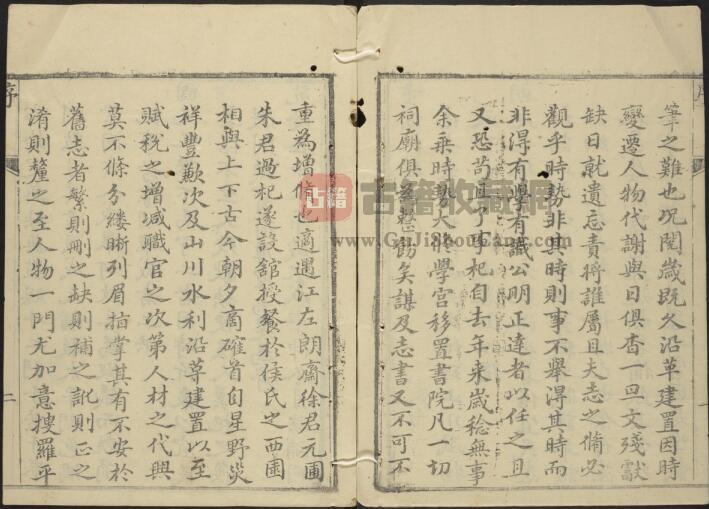 筆之難也况閱歲既久沿革建置因時
變遷人物代謝與日俱杳一旦文殘獻
缺日就遺忘責將誰屬且夫志之脩必
觀乎時勢非其時則事不舉得其時而
非得有學有識公明正達者以任之且
又恐苟且了事杞自去年来歲稔無事
余乗時勢大將學宮移置書院凡一切
祠廟俱為整飭矣謀及志書又不可不
重為增修也適遇江左朗齋徐君元圃
朱君過杞遂設舘授餐於侯氏之西園
相與上下古今朝夕商確首自星野災
祥豐歉次及山川水利沿革建置以至
賦稅之增减職官之次第人材之代興
莫不條分縷晰列眉指掌其有不安於
舊志者繁則刪之缺則補之訛則正之
淆則釐之至人物一門尤加意搜羅平
序
二
序
古籍
古籍收藏網
www.GuJiShouCang.com